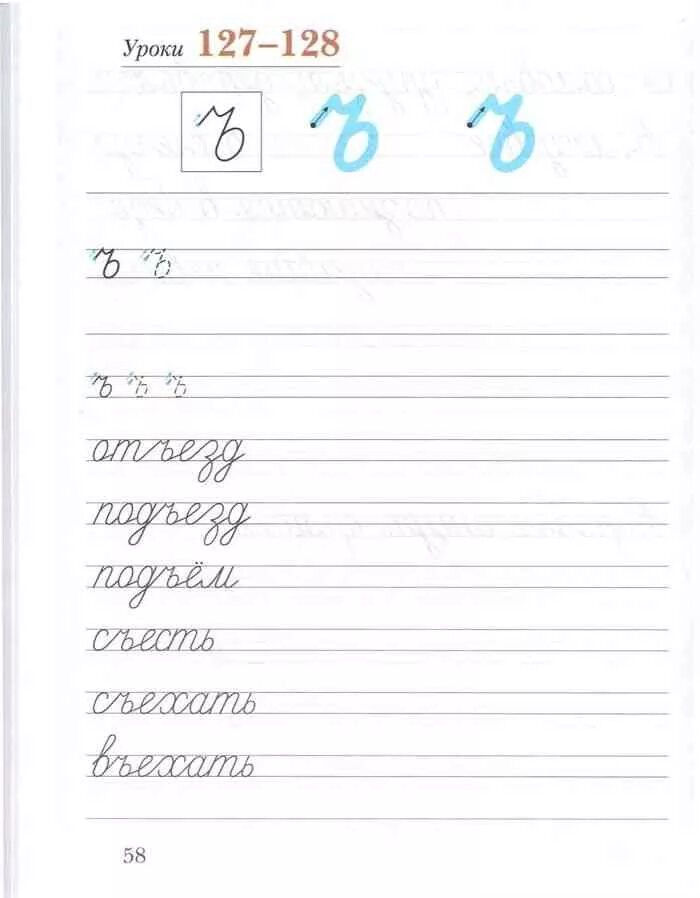 Уроки 127–128
ъ ъ ъ
ъ ъ
ъ ъ ъ
отъезд
подъезд
подъём
съесть
съехать
въехать
58